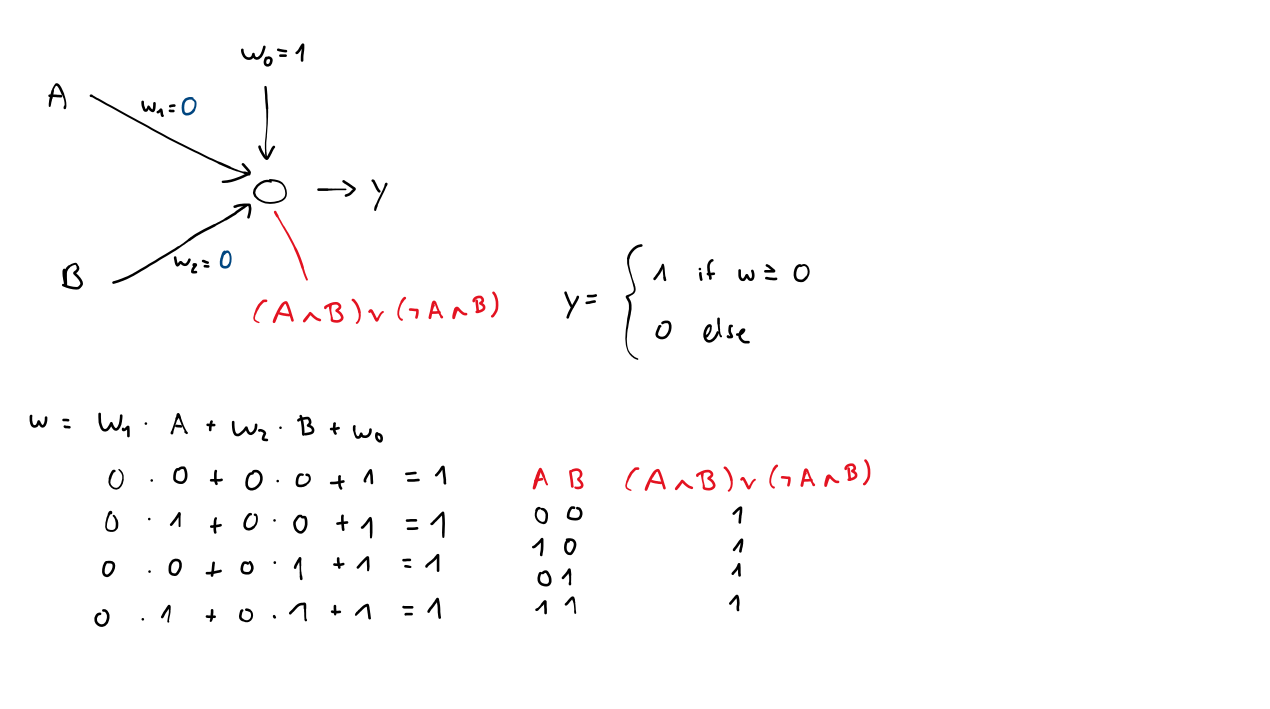 w₀ = 1
A
w₁ = 0
→ y
B
w₂ = 0
(A ∧ B) ∨ (¬ A ∧ B)
y = { 1 if w ≥ 0
0 else
w = w₁ · A + w₂ · B + w₀
0 · 0 + 0 · 0 + 1 = 1
0 · 1 + 0 · 0 + 1 = 1
0 · 0 + 0 · 1 + 1 = 1
0 · 1 + 0 · 1 + 1 = 1
A B (A ∧ B) ∨ (¬ A ∧ B)
0 0 1
1 0 1
0 1 1
1 1 1